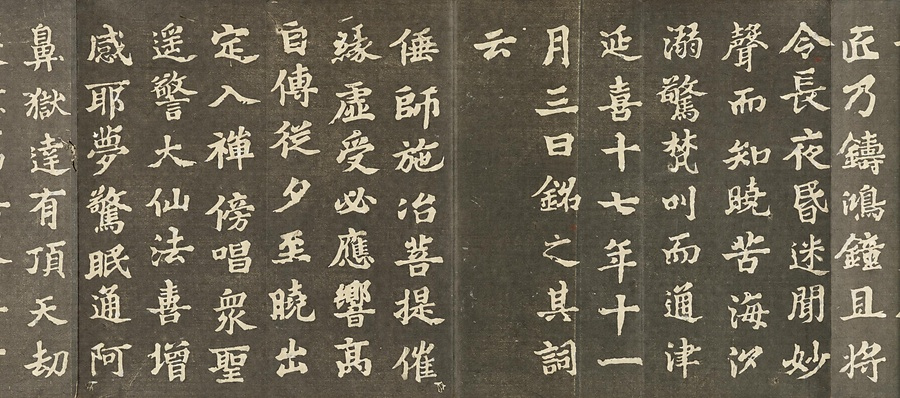 匠乃鑄鴻鐘且將
令長夜昏迷聞妙
聲而知曉苦海沙
溺驚梵叫而通津
延喜十七年十一
月三日銘之其詞
云
倕師施冶菩提催
緣虛受必應響高
自傳從夕至曉出
定入禪傍唱衆聖
遥警大仙法善增
感耶夢驚眠通阿
鼻獄達有頂天劫